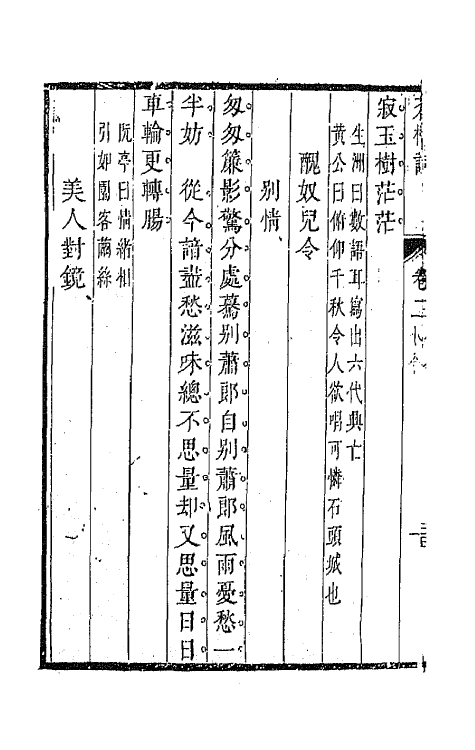 寂玉樹茫茫
生洲曰數語耳寫出六代興亡
黃公曰俯仰千秋令人欲唱可憐石頭城也
醜奴兒令
別情
匆匆簾影驚分處驀別蕭郎自別蕭郎風雨憂愁一
半妨　從今諳盡愁滋味總不思量却又思量日日
車輪更轉腸
阮亭曰情緒相
引如園客繭絲
美人對鏡